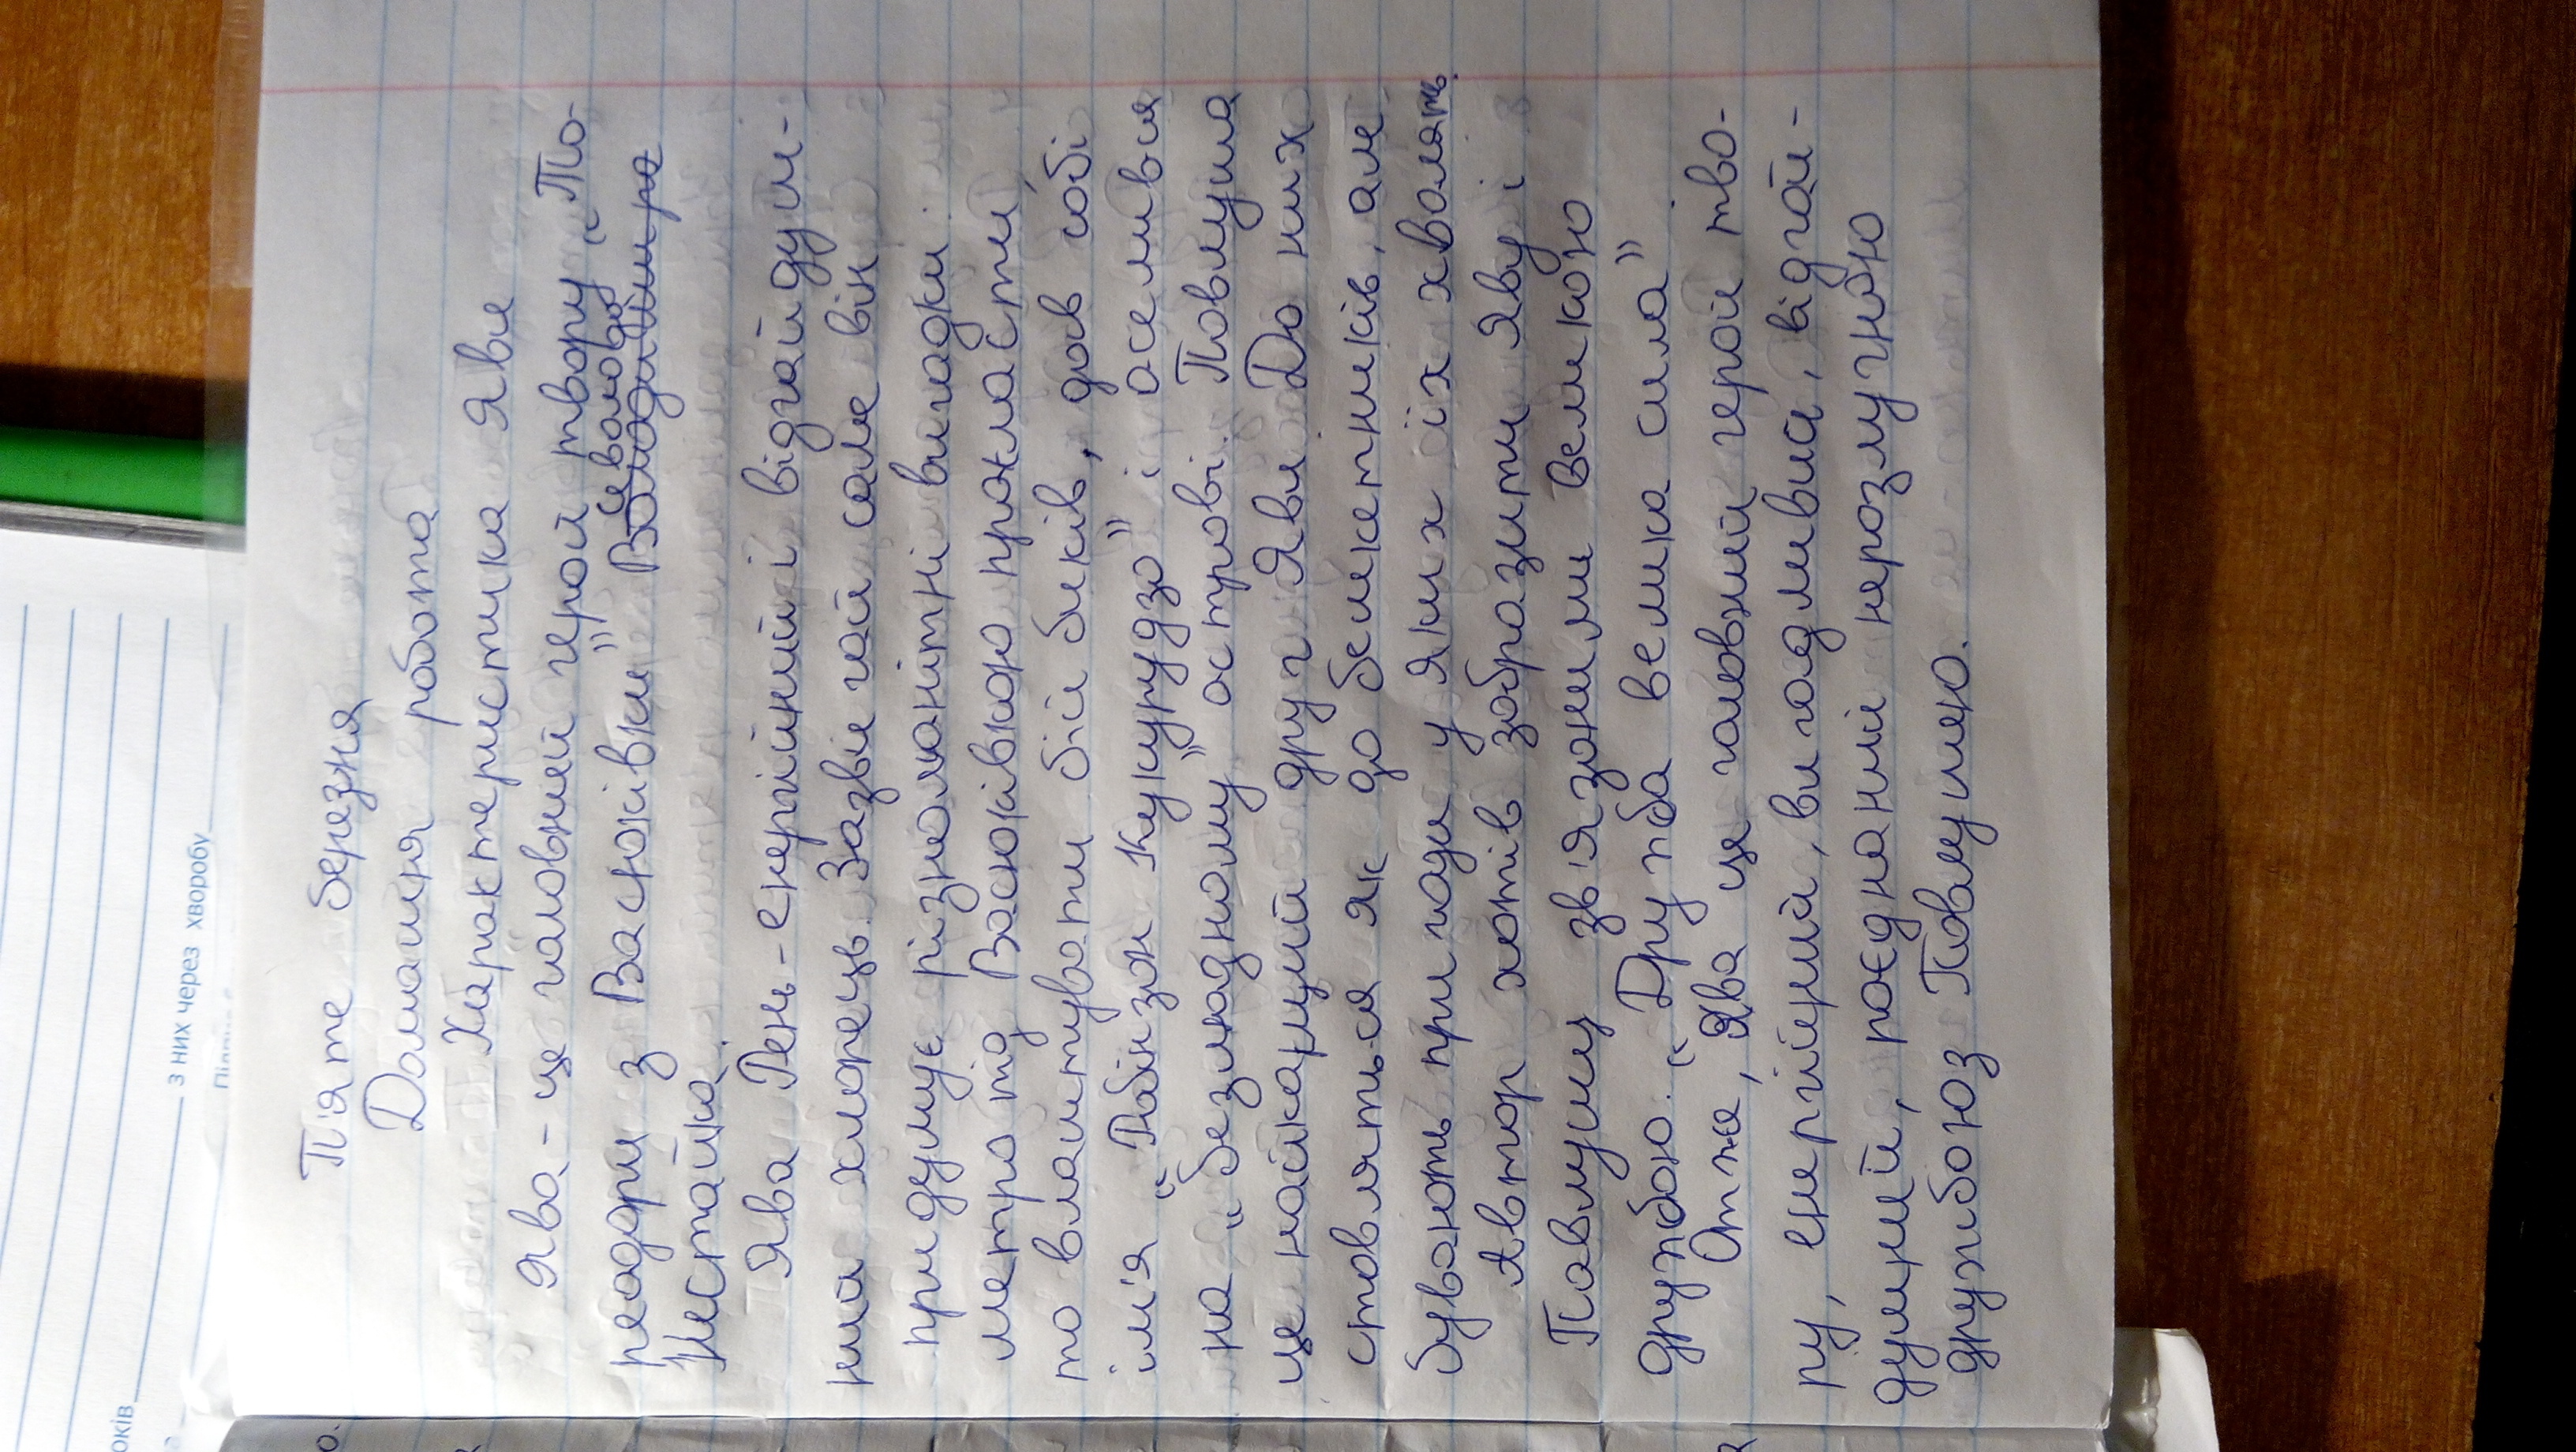 оків
з них через хворобу
П'яте березня
Домашня робота
Характеристика Яви
Ява - це головний герой твору "То-
реадори з Васюківки" Всеволода Володимира
Нестайка.
Ява Рень - енергійний і відчайдуш-
ний хлопець. Зазвичай саме він
придумує різноманітні вигадки:
метро під Васюківкою прокласти,
то влаштувати бій биків, дав собі
ім'я "Робінзон Кукурудзо" і оселився
на "безлюдному" острові. Павлуша
це найкарщий друг Яви. До них
ставляться як до бешкетників, але
бувають пригоди у яких їх хвалять.
Автор хотів зобразити Яву і
Павлушу зв'язаними великою
дружбою. "Дружба велика сила"
Отже, Ява це головний герой тво-
ру, енергійний, вигадливий, відчай-
душний, поєднаний нерозлучною
дружбою з Павлушею.